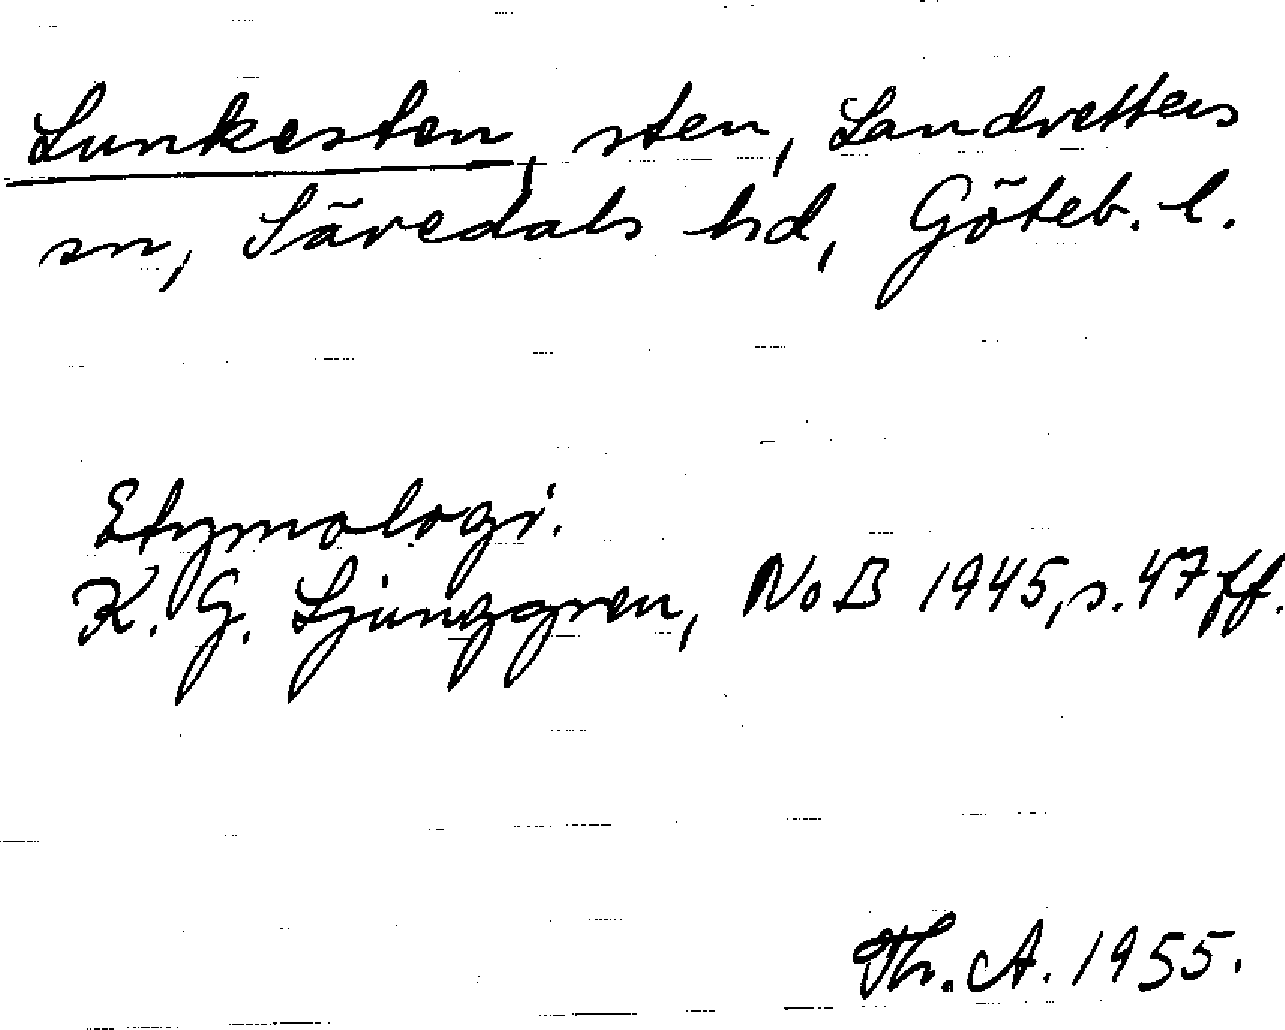 Lunkesten, sten, Landvetters
sn, Sävedals hd, Göteb. l.
Etymologi.
K. G. Ljunggren, NoB 1945, s. 47 ff.
Th. A. 1955.